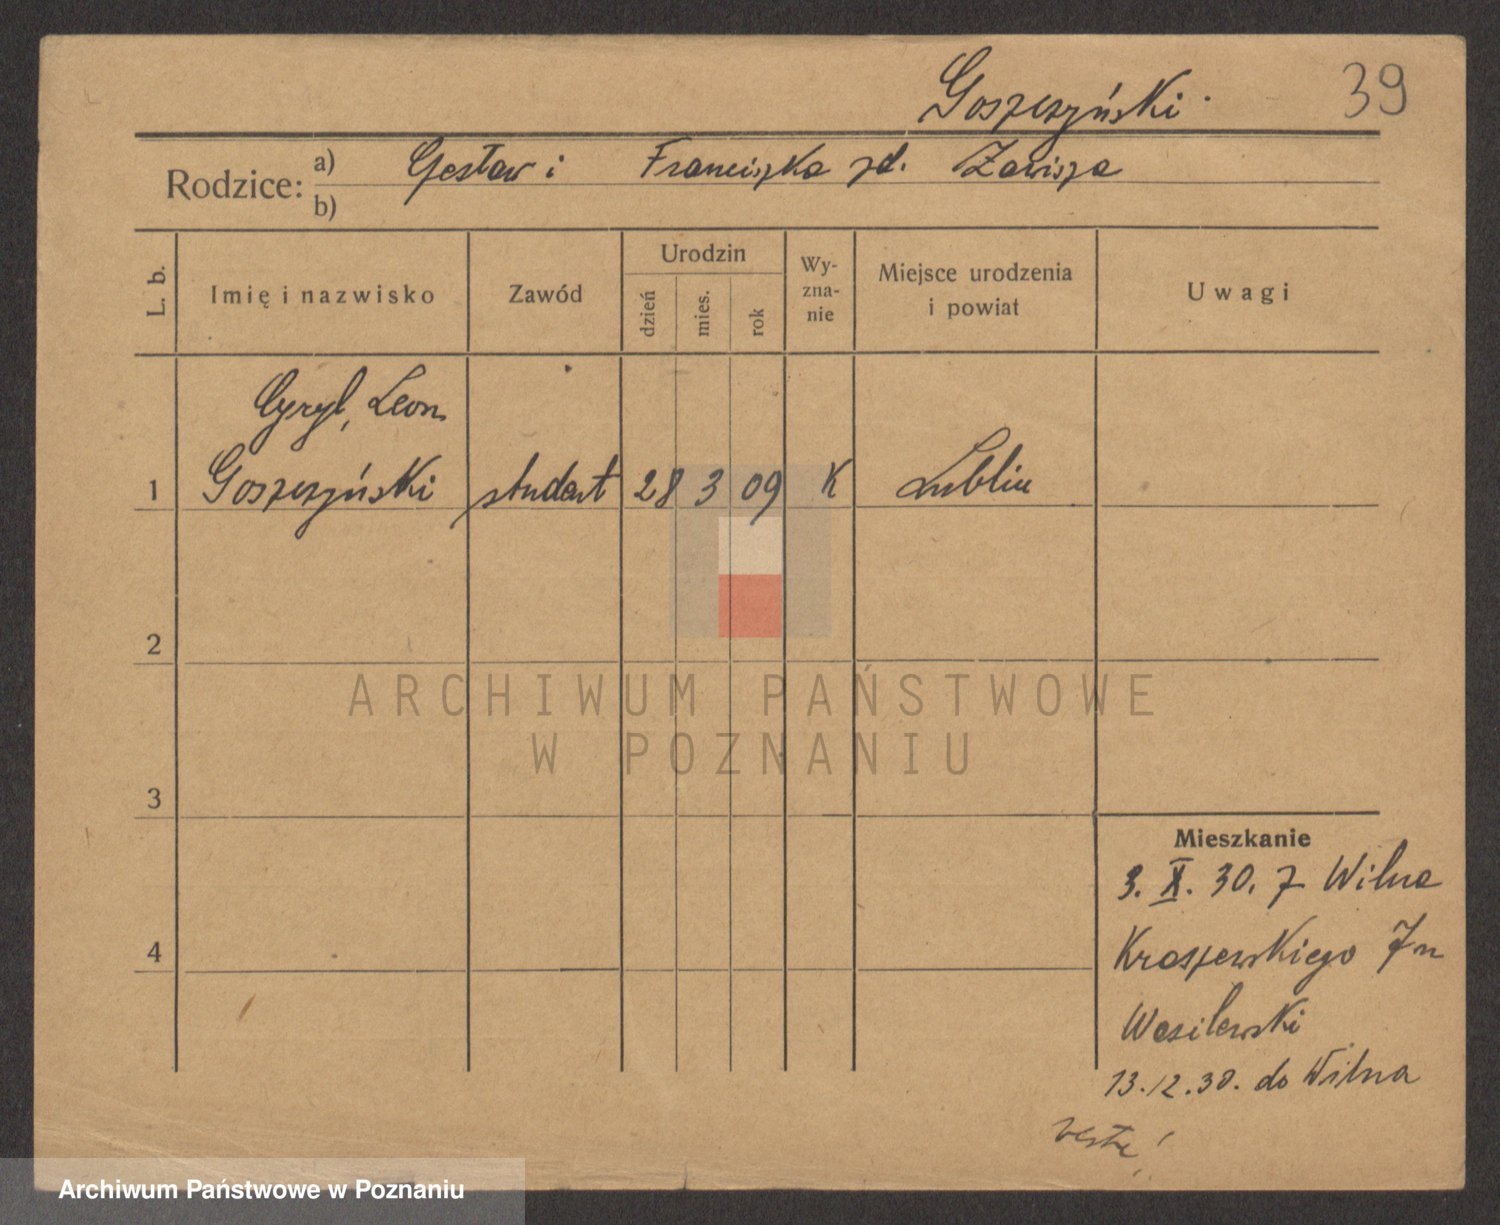 Goszczyński.
39
Rodzice:
a) Czesław i Franciszka zd. Zawisza
b)
L. b.
Imię i nazwisko
Zawód
Urodzin
dzień
mies.
rok
Wy-
zna-
nie
Miejsce urodzenia
i powiat
Uwagi
Cyryl, Leon
1 Goszczyński student 28 3 09 K Lublin
2
3
4
ARCHIWUM PAŃSTWOWE
W POZNANIU
Mieszkanie
3. X. 30. z Wilna
Kraszewskiego 7
Wasilewski
13.12.30. do Wilna
Archiwum Państwowe w Poznaniu